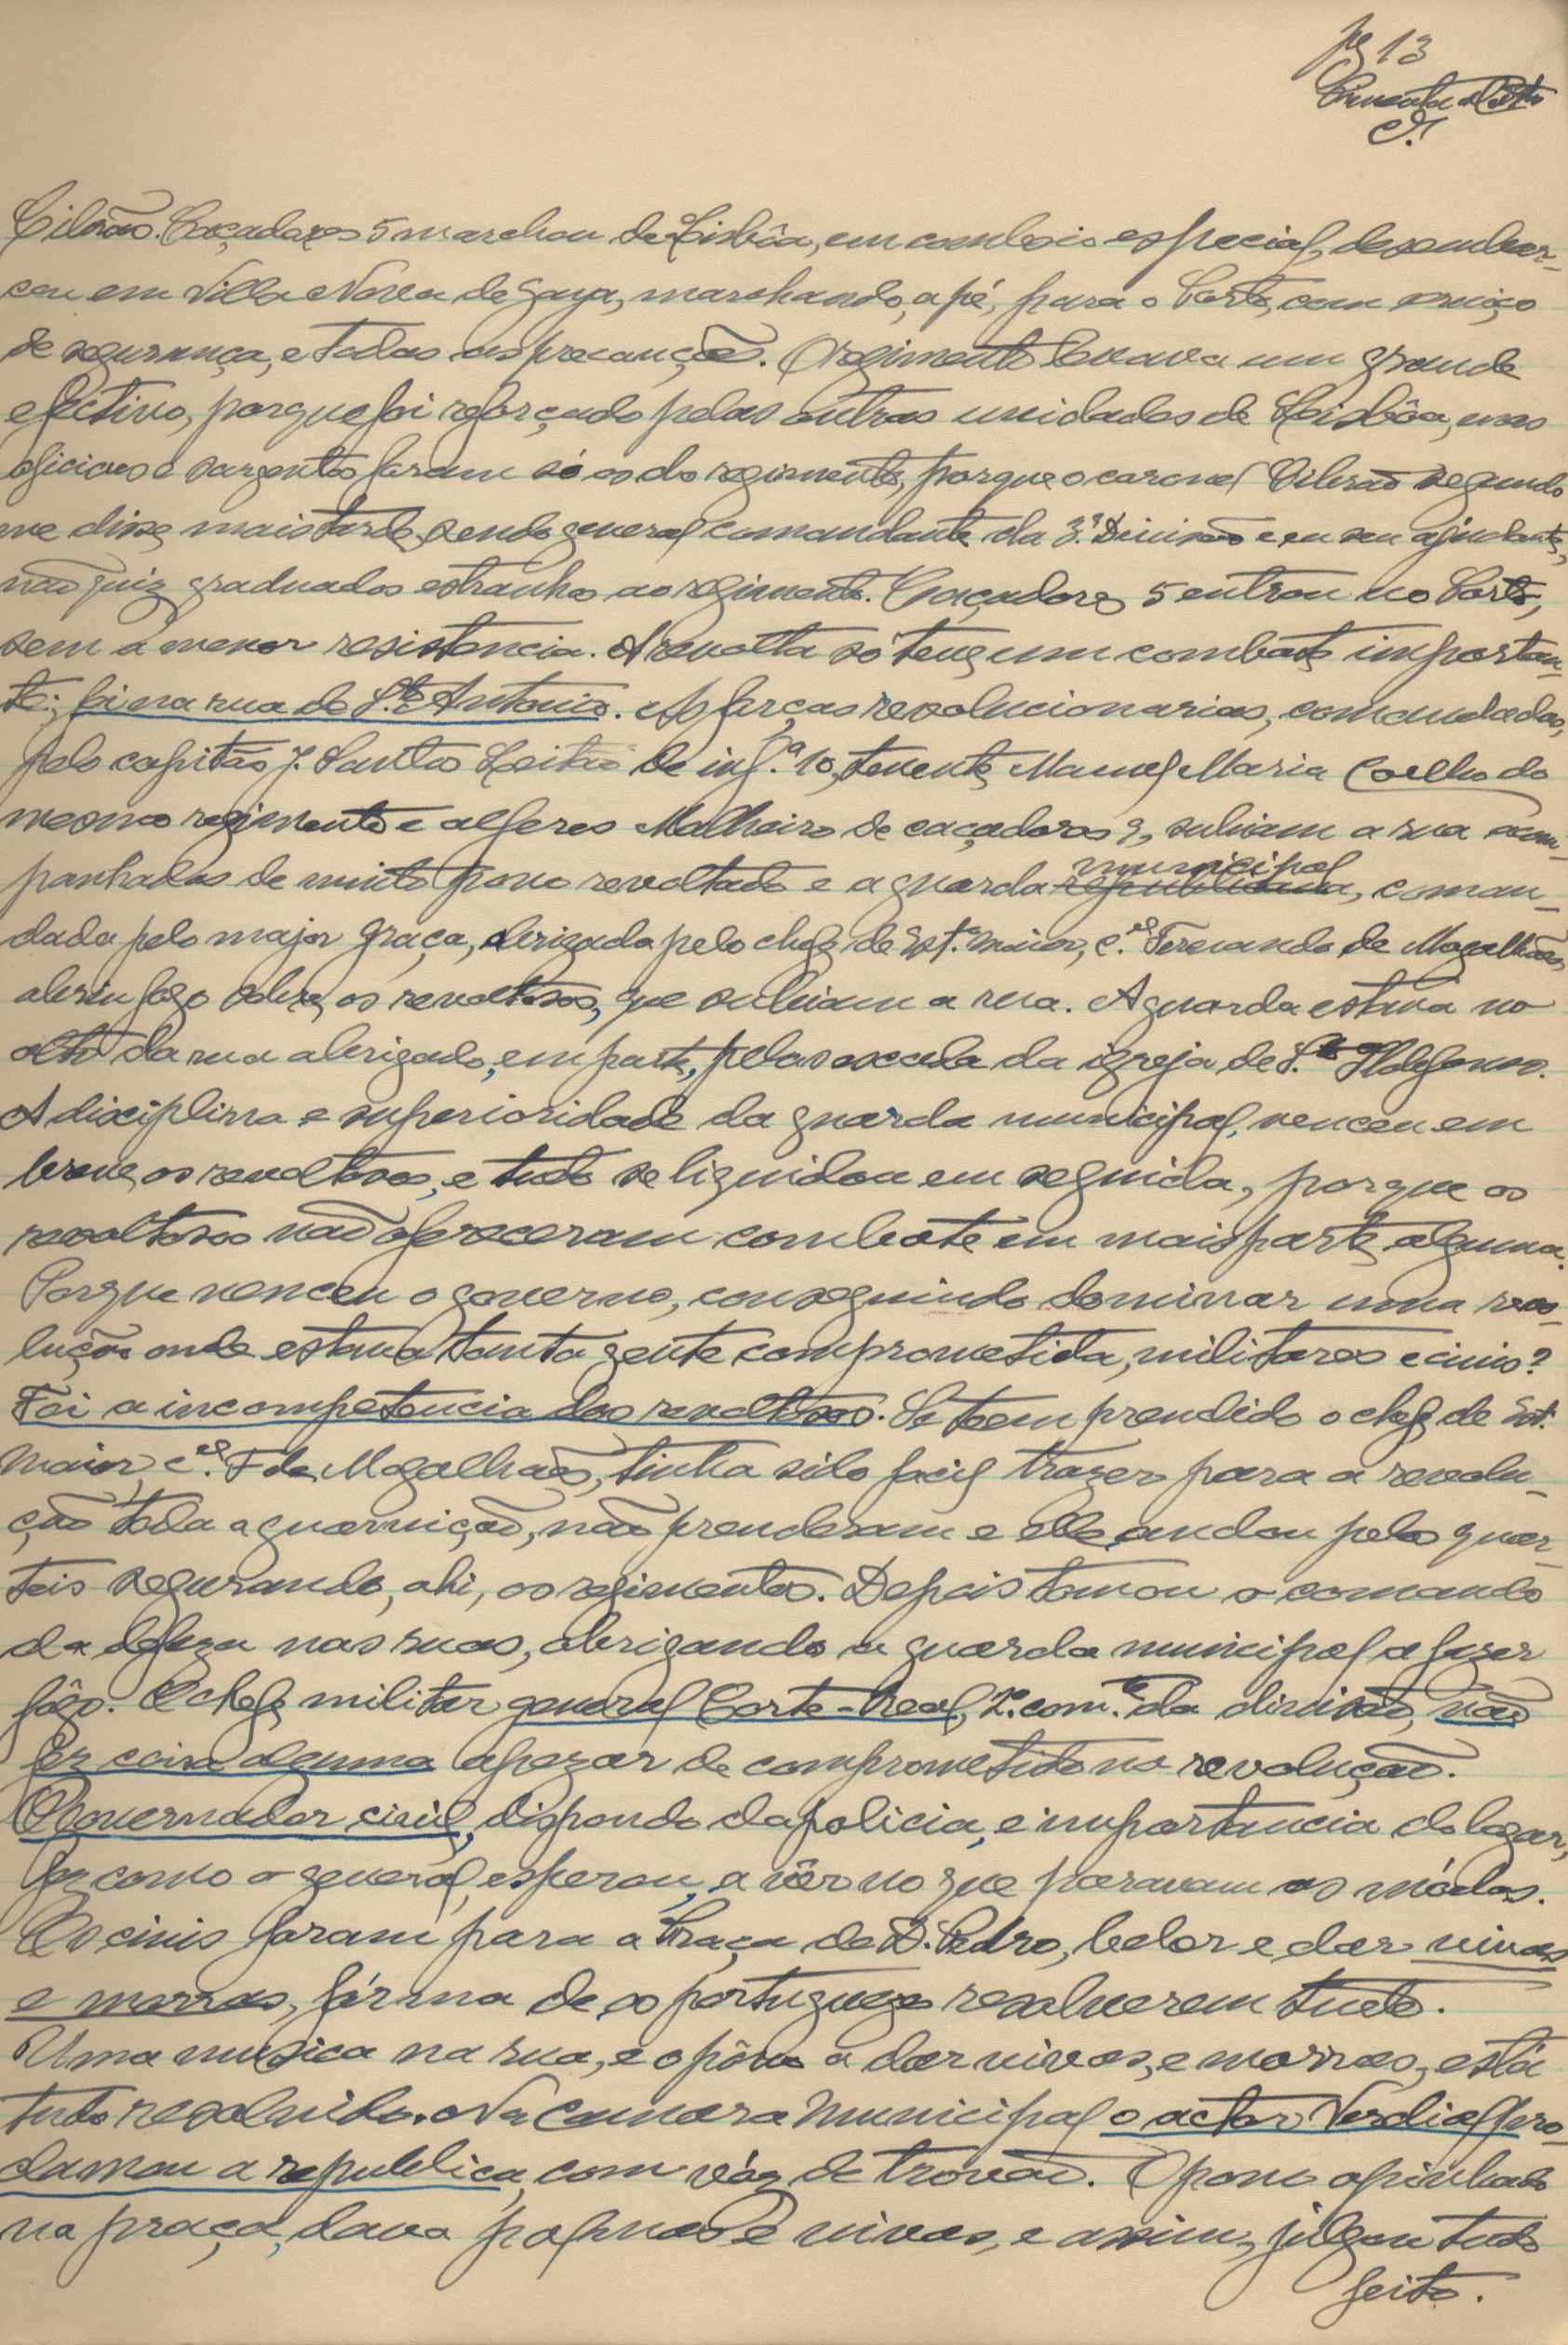 pg 13
Pimenta de Castro
Cibrão. Caçadores 5 marchou de Lisbôa, em comboio especial, desembar-
cou em Villa Nova de Gaya, marchando, a pé, para o Porto, com serviço
de segurança, e todas as precauções. O regimento levava um grande
efectivo, porque foi reforçado pelas outras unidades de Lisbôa, mas
oficiaes e sargentos foram só os do regimento, porque o coronel Cibrão segundo
me disse, mais tarde, sendo general comandante da 3.ª Divisão e eu seu ajudante,
não quiz graduados estranhos ao regimento. Caçadores 5 entrou no Porto,
sem a menor resistencia. A revolta só teve um combate importan-
te; foi na rua de S.to Antonio. As forças revolucionarias, comandadas,
pelo capitão J. Santos Leitão de inf.ª 10, tenente Manuel Maria Coelho do
mesmo regimento e alferes Malheiro de caçadores 9, subiam a rua acom-
panhadas de muito povo revoltado e a guarda republicana municipal, coman-
dada pelo major Graça, obrigada pelo chefe de Est.º maior, c.el Fernando de Magalhães
abriu fogo sobre os revoltosos, que subiam a rua. A guarda estava no
alto da rua abrigada, em parte, pelas escada da igreja de S.to Ildefonso.
A disciplina e superioridade da guarda municipal, venceu em
breve, os revoltosos, e tudo se liquidou em seguida, porque os
revoltosos não ofereceram combate em mais parte alguma.
Porque venceu o governo, conseguindo dominar uma revo-
lução onde estava tanta gente comprometida, militares e civis?
Foi a incompetencia dos revoltosos. Se teem prendido o chefe de Est.
Maior c.el F de Magalhães, tinha sido facil trazer para a revolu-
ção toda a guarnição, não prenderam e elle andou pelos quar-
teis segurando, ahi, os regimentos. Depois tomou o comando
da defeza nas ruas, obrigando a guarda municipal a fazer
fôgo. O chefe militar general Corte-Real, 2.º com.te da divisão, não
fez coisa alguma apezar de comprometido na revolução.
O governador civil, dispondo da policia, e importancia do logar,
fez como o general, esperou, a vêr no que paravam as módas.
Os civis foram para a Praça de D. Pedro, beber e dar vivas
e morras, fórma de os portuguezes resolverem tudo.
Uma musica na rua, e o pôvo a dar vivas, e morras, está
tudo resolvido. Na Camara Municipal o actor Verdial pro-
clamou a republica, com vóz de trovão. O povo apinhado
na praça, dava palmas e vivas, e assim, julgou tudo
feito.